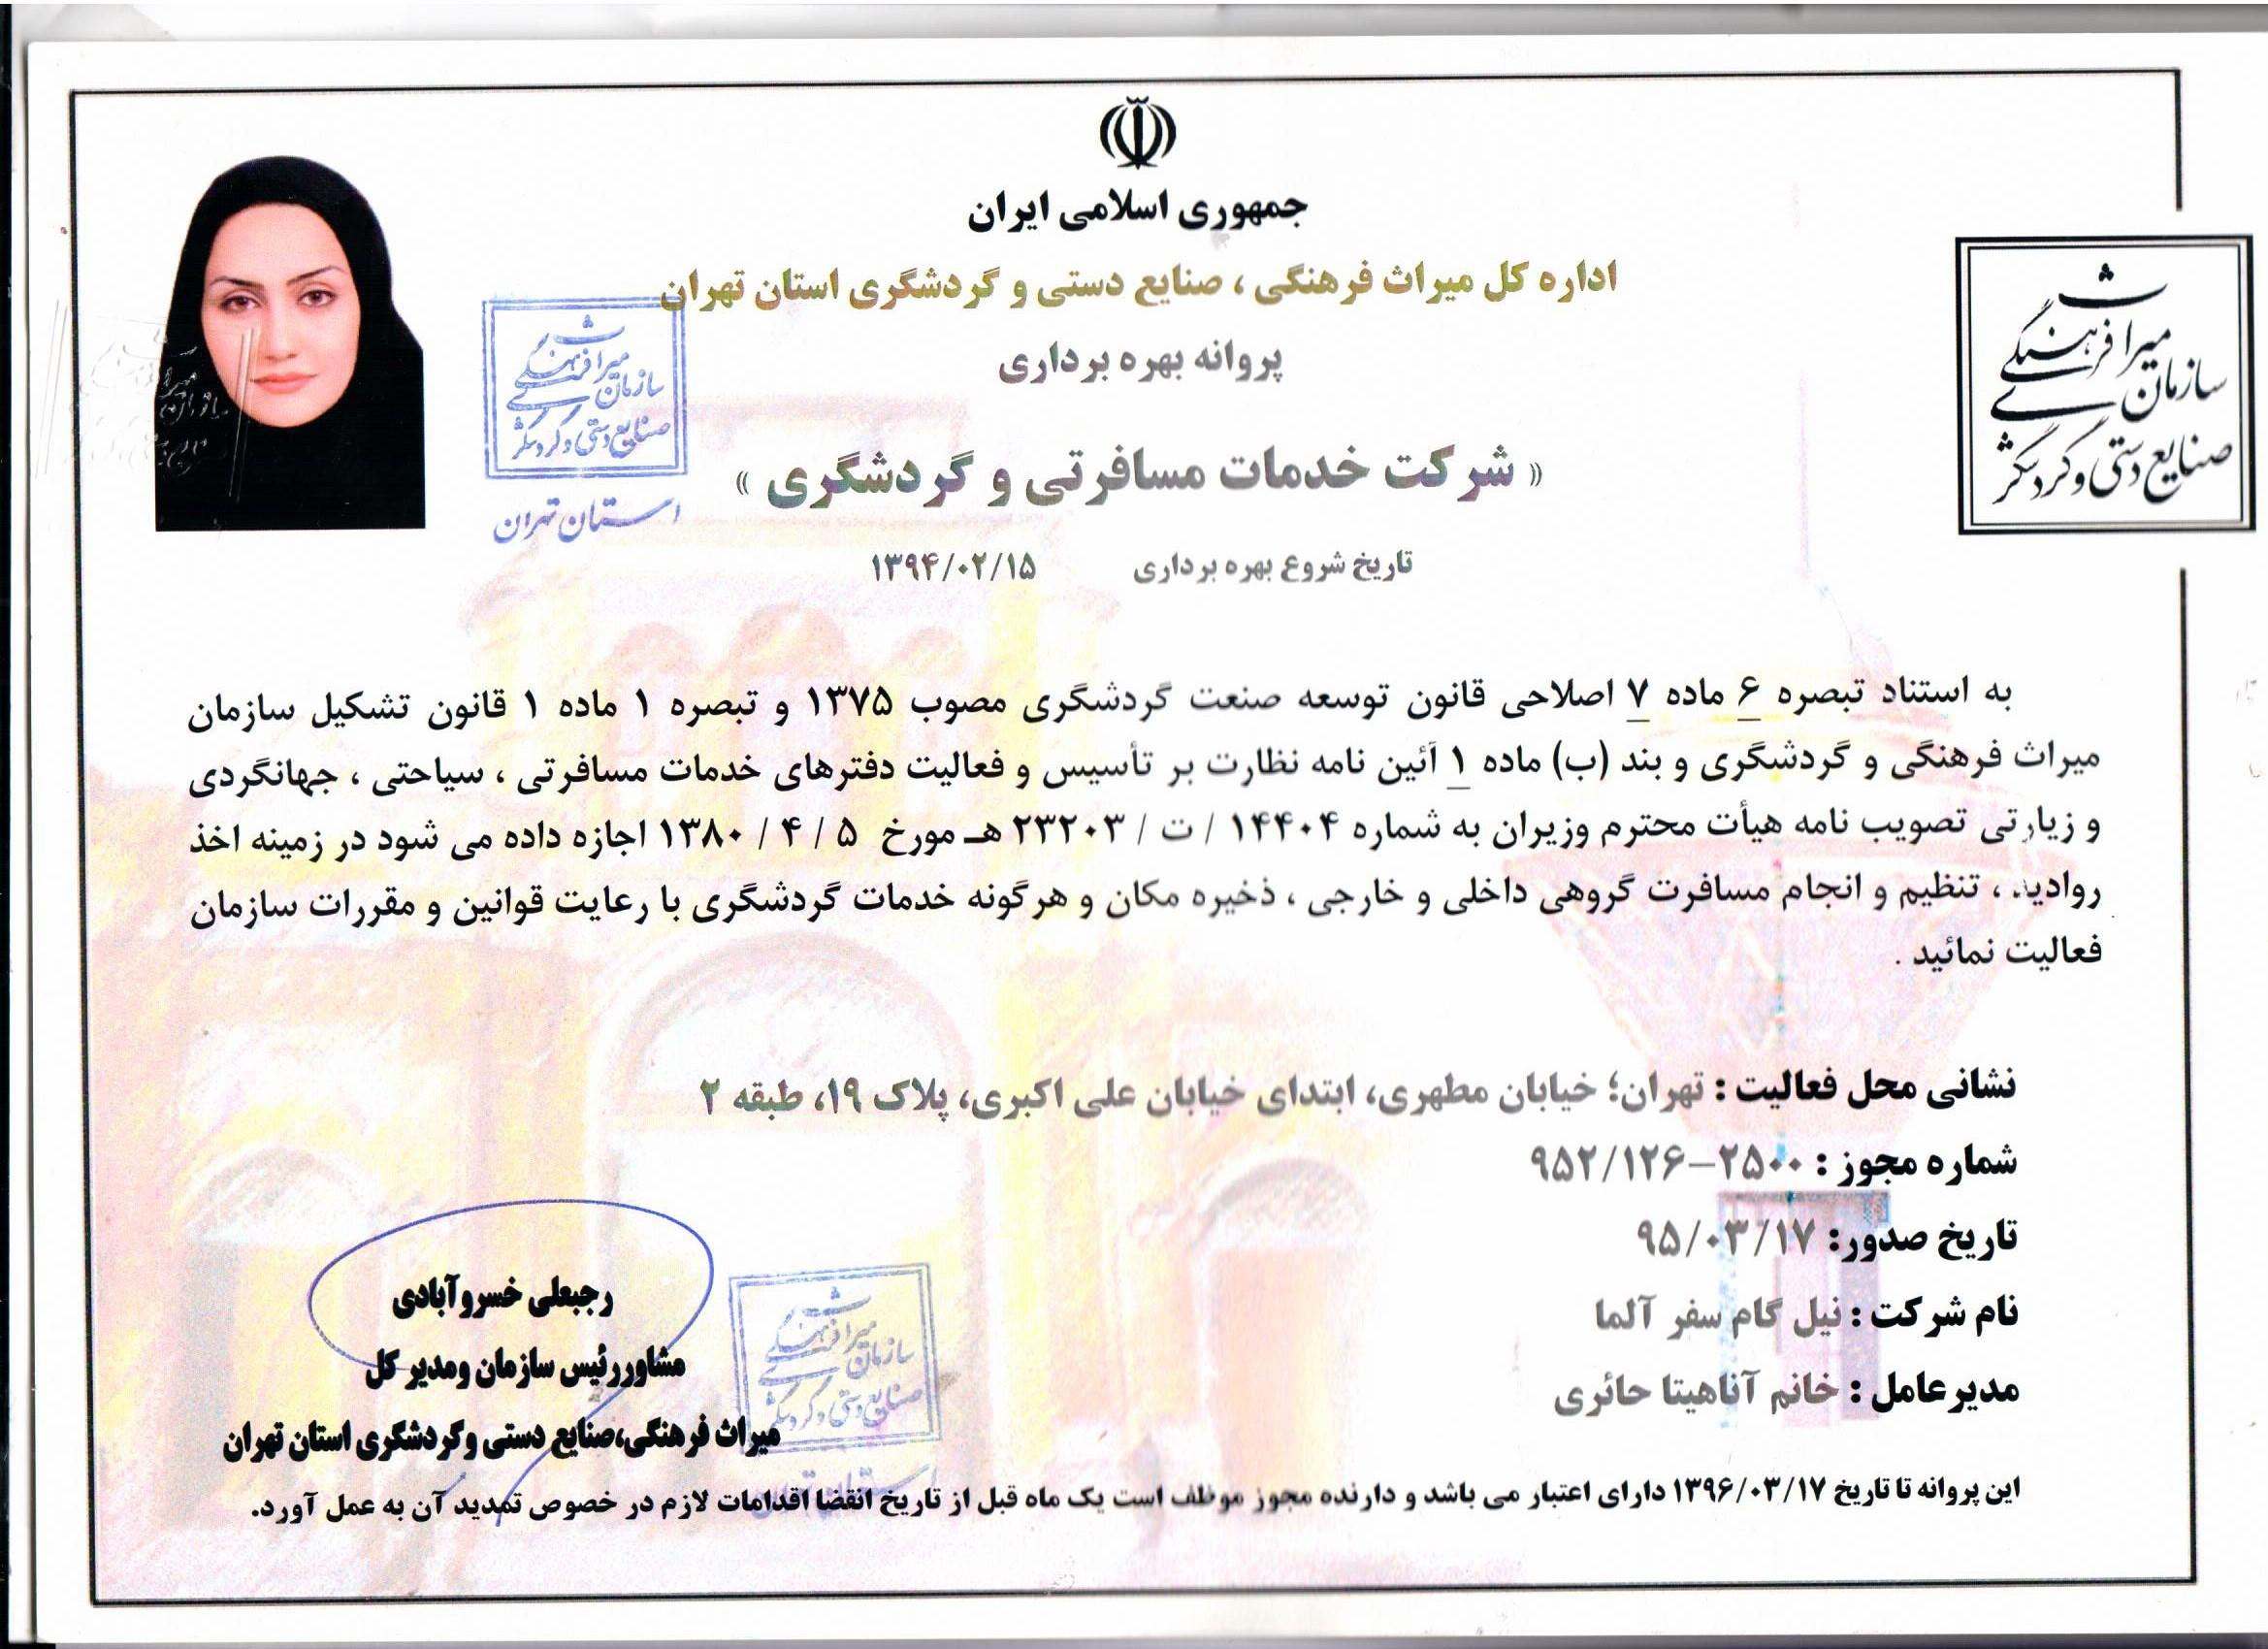 جمهوری اسلامی ایران
اداره کل میراث فرهنگی ، صنایع دستی و گردشگری استان تهران
پروانه بهره برداری
« شرکت خدمات مسافرتی و گردشگری »
تاریخ شروع بهره برداری ۱۳۹۴/۰۲/۱۵
سازمان میراث فرهنگی
صنایع دستی و گردشگری
سازمان میراث فرهنگی
صنایع دستی و گردشگری
استان تهران
به استناد تبصره ۶ ماده ۷ اصلاحی قانون توسعه صنعت گردشگری مصوب ۱۳۷۵ و تبصره ۱ ماده ۱ قانون تشکیل سازمان
میراث فرهنگی و گردشگری و بند (ب) ماده ۱ آئین نامه نظارت بر تأسیس و فعالیت دفترهای خدمات مسافرتی ، سیاحتی ، جهانگردی
و زیارتی تصویب نامه هیأت محترم وزیران به شماره ۱۴۴۰۴ / ت / ۲۳۲۰۳ هـ مورخ ۵ / ۴ / ۱۳۸۰ اجازه داده می شود در زمینه اخذ
روادید ، تنظیم و انجام مسافرت گروهی داخلی و خارجی ، ذخیره مکان و هرگونه خدمات گردشگری با رعایت قوانین و مقررات سازمان
فعالیت نمائید .
نشانی محل فعالیت : تهران؛ خیابان مطهری، ابتدای خیابان علی اکبری، پلاک ۱۹، طبقه ۲
شماره مجوز : ۹۵۲/۱۲۶-۲۵۰۰
تاریخ صدور: ۹۵/۰۳/۱۷
نام شرکت : نیل گام سفر آلما
مدیرعامل : خانم آناهیتا حائری
رجبعلی خسروآبادی
مشاوررئیس سازمان ومدیر کل
میراث فرهنگی،صنایع دستی وگردشگری استان تهران
سازمان میراث فرهنگی
صنایع دستی و گردشگری
این پروانه تا تاریخ ۱۳۹۶/۰۳/۱۷ دارای اعتبار می باشد و دارنده مجوز موظف است یک ماه قبل از تاریخ انقضا اقدامات لازم در خصوص تمدید آن به عمل آورد.